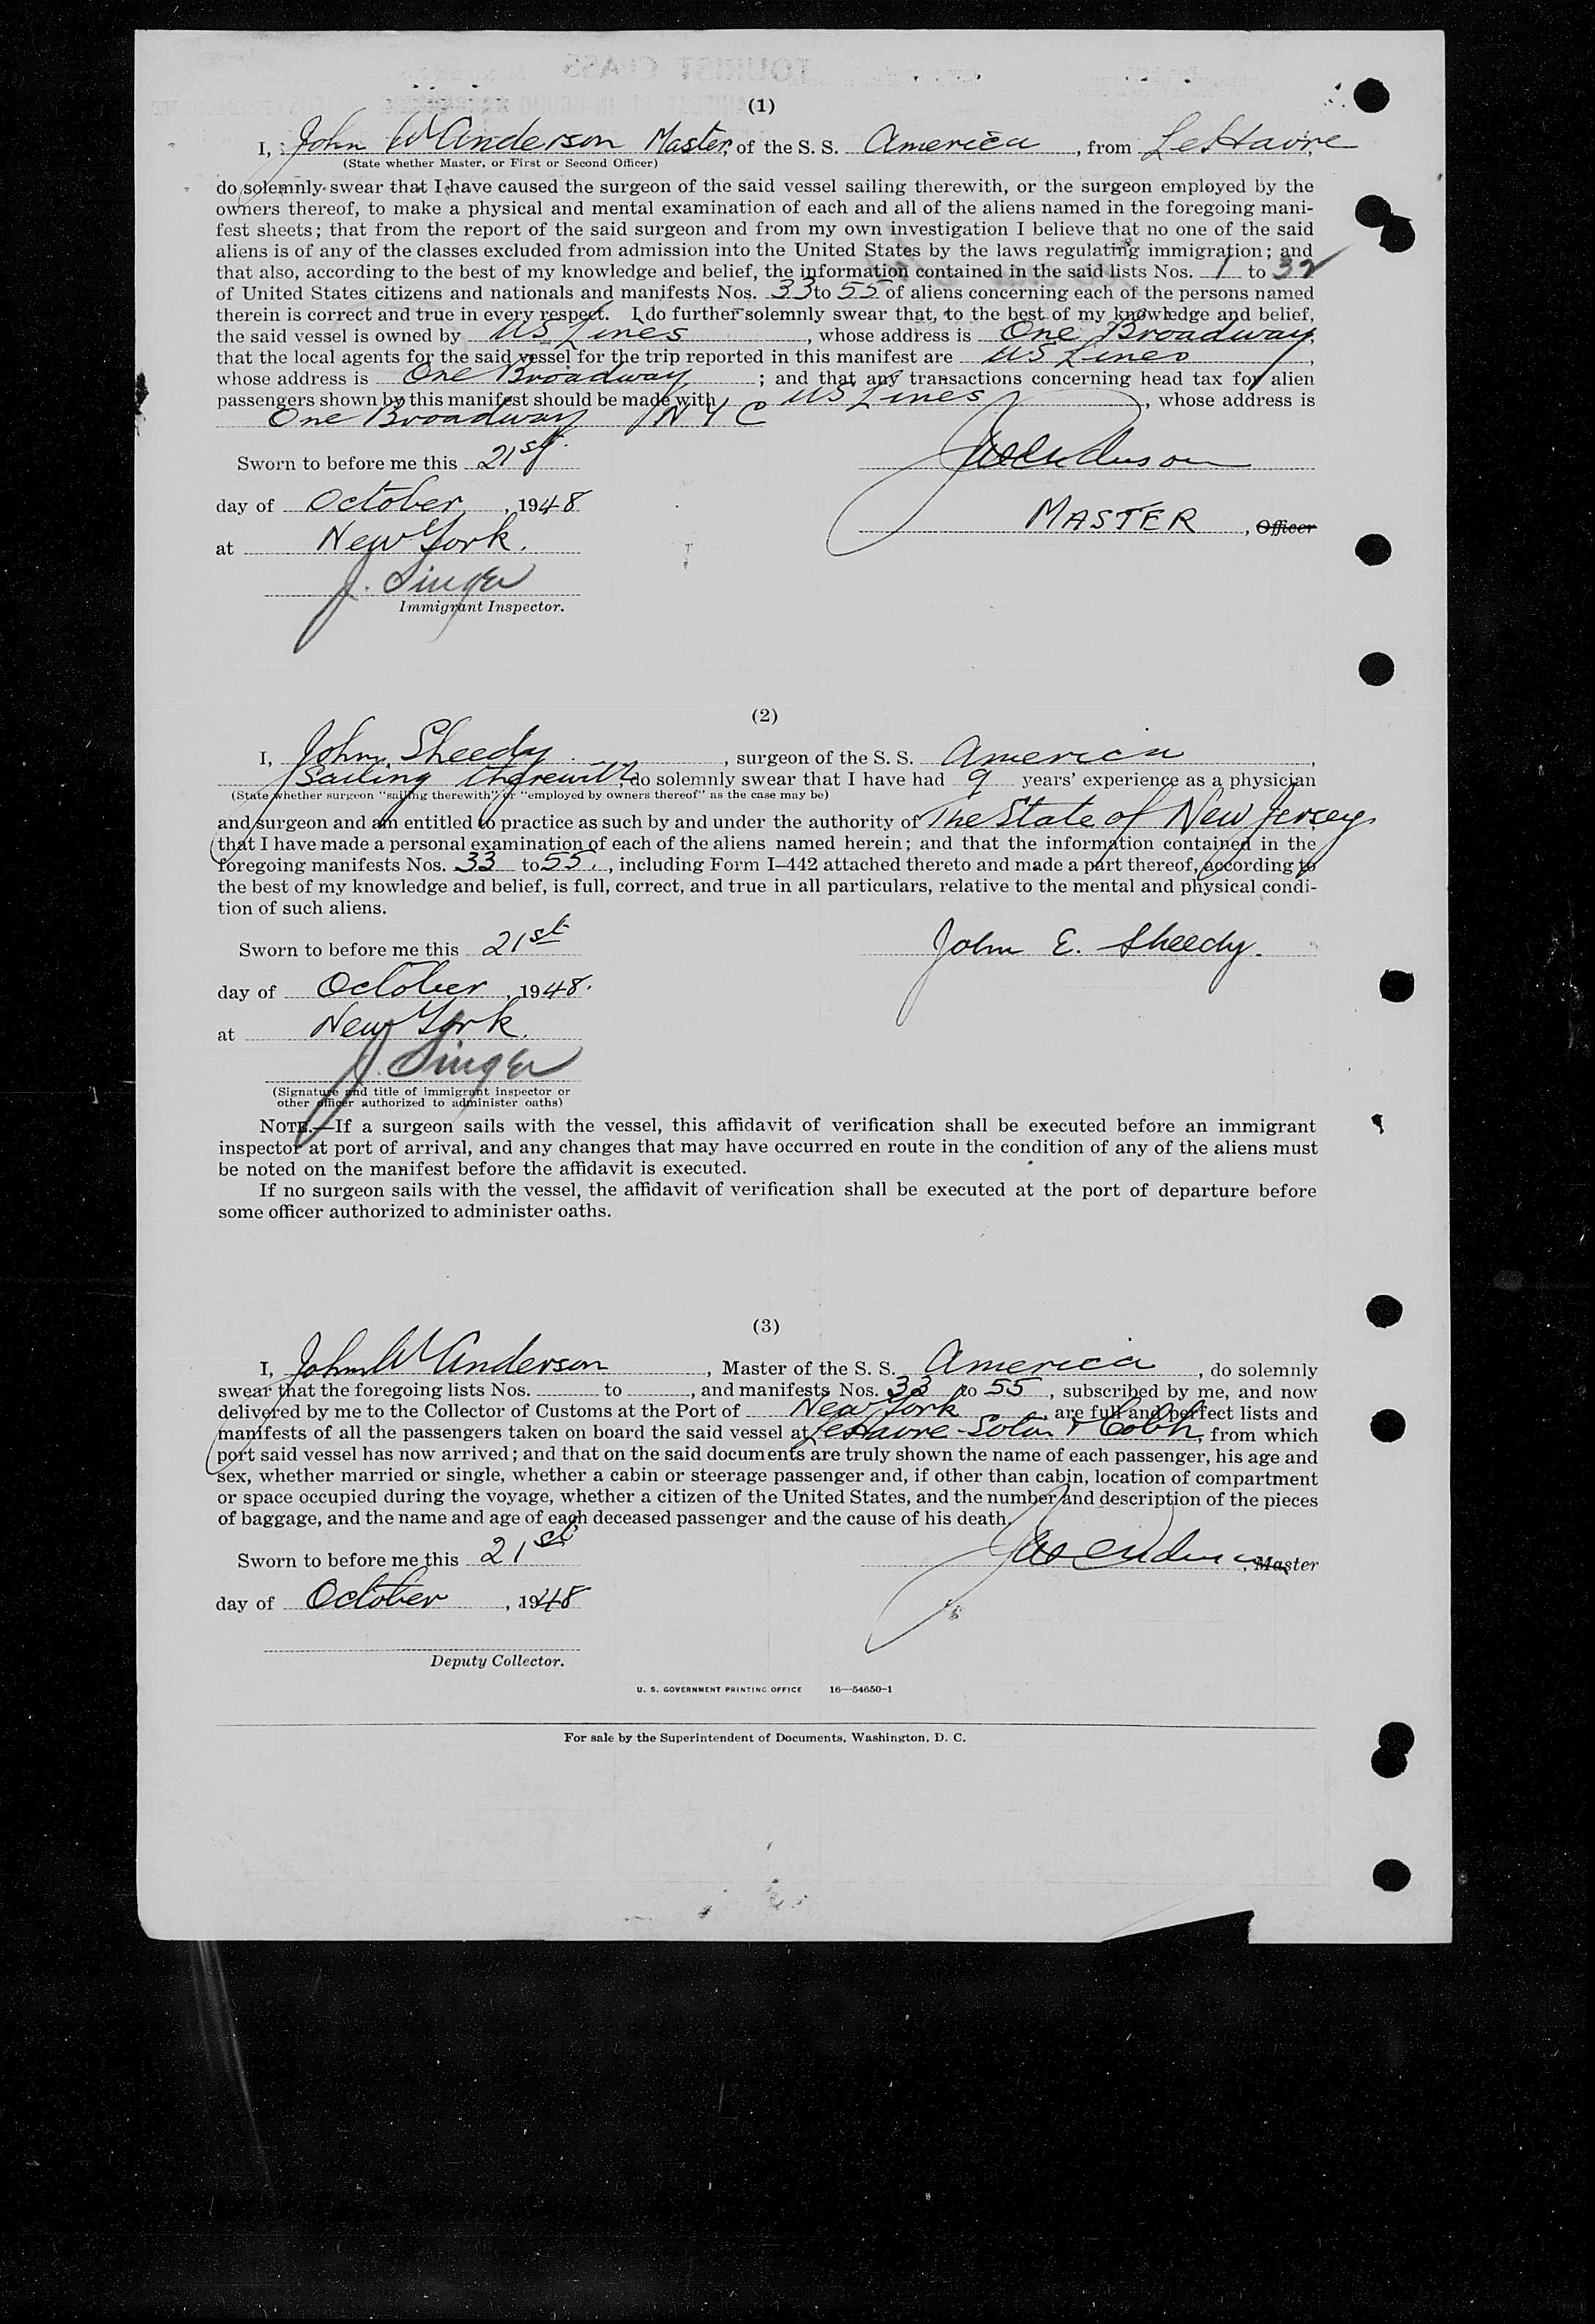 (1)
I, John W Anderson Master, of the S. S. America, from LeHavre
(State whether Master, or First or Second Officer)
do solemnly swear that I have caused the surgeon of the said vessel sailing therewith, or the surgeon employed by the
owners thereof, to make a physical and mental examination of each and all of the aliens named in the foregoing mani-
fest sheets; that from the report of the said surgeon and from my own investigation I believe that no one of the said
aliens is of any of the classes excluded from admission into the United States by the laws regulating immigration; and
that also, according to the best of my knowledge and belief, the information contained in the said lists Nos. 1 to 32
of United States citizens and nationals and manifests Nos. 33 to 55 of aliens concerning each of the persons named
therein is correct and true in every respect. I do further solemnly swear that, to the best of my knowledge and belief,
the said vessel is owned by US Lines, whose address is One Broadway,
that the local agents for the said vessel for the trip reported in this manifest are US Lines,
whose address is One Broadway; and that any transactions concerning head tax for alien
passengers shown by this manifest should be made with US Lines, whose address is
One Broadway N Y C
Sworn to before me this 21st
day of October, 1948
MASTER, Officer
at New York.
J. Singer
Immigrant Inspector.
(2)
I, John Sheedy, surgeon of the S. S. America,
Sailing therewith, do solemnly swear that I have had 9 years' experience as a physician
(State whether surgeon "sailing therewith" or "employed by owners thereof" as the case may be)
and surgeon and am entitled to practice as such by and under the authority of The State of New Jersey,
that I have made a personal examination of each of the aliens named herein; and that the information contained in the
foregoing manifests Nos. 33 to 55., including Form I-442 attached thereto and made a part thereof, according to
the best of my knowledge and belief, is full, correct, and true in all particulars, relative to the mental and physical condi-
tion of such aliens.
Sworn to before me this 21st
John E. Sheedy.
day of October, 1948.
at New York.
J. Singer
(Signature and title of immigrant inspector or
other officer authorized to administer oaths)
NOTE.—If a surgeon sails with the vessel, this affidavit of verification shall be executed before an immigrant
inspector at port of arrival, and any changes that may have occurred en route in the condition of any of the aliens must
be noted on the manifest before the affidavit is executed.
If no surgeon sails with the vessel, the affidavit of verification shall be executed at the port of departure before
some officer authorized to administer oaths.
(3)
I, John W Anderson, Master of the S. S. America, do solemnly
swear that the foregoing lists Nos. to , and manifests Nos. 33 to 55, subscribed by me, and now
delivered by me to the Collector of Customs at the Port of New York, are full and perfect lists and
manifests of all the passengers taken on board the said vessel at LeHavre - Soton & Cobh, from which
port said vessel has now arrived; and that on the said documents are truly shown the name of each passenger, his age and
sex, whether married or single, whether a cabin or steerage passenger and, if other than cabin, location of compartment
or space occupied during the voyage, whether a citizen of the United States, and the number and description of the pieces
of baggage, and the name and age of each deceased passenger and the cause of his death.
Sworn to before me this 21st
, Master
day of October, 1948
Deputy Collector.
U. S. GOVERNMENT PRINTING OFFICE 16—54650-1
For sale by the Superintendent of Documents, Washington, D. C.